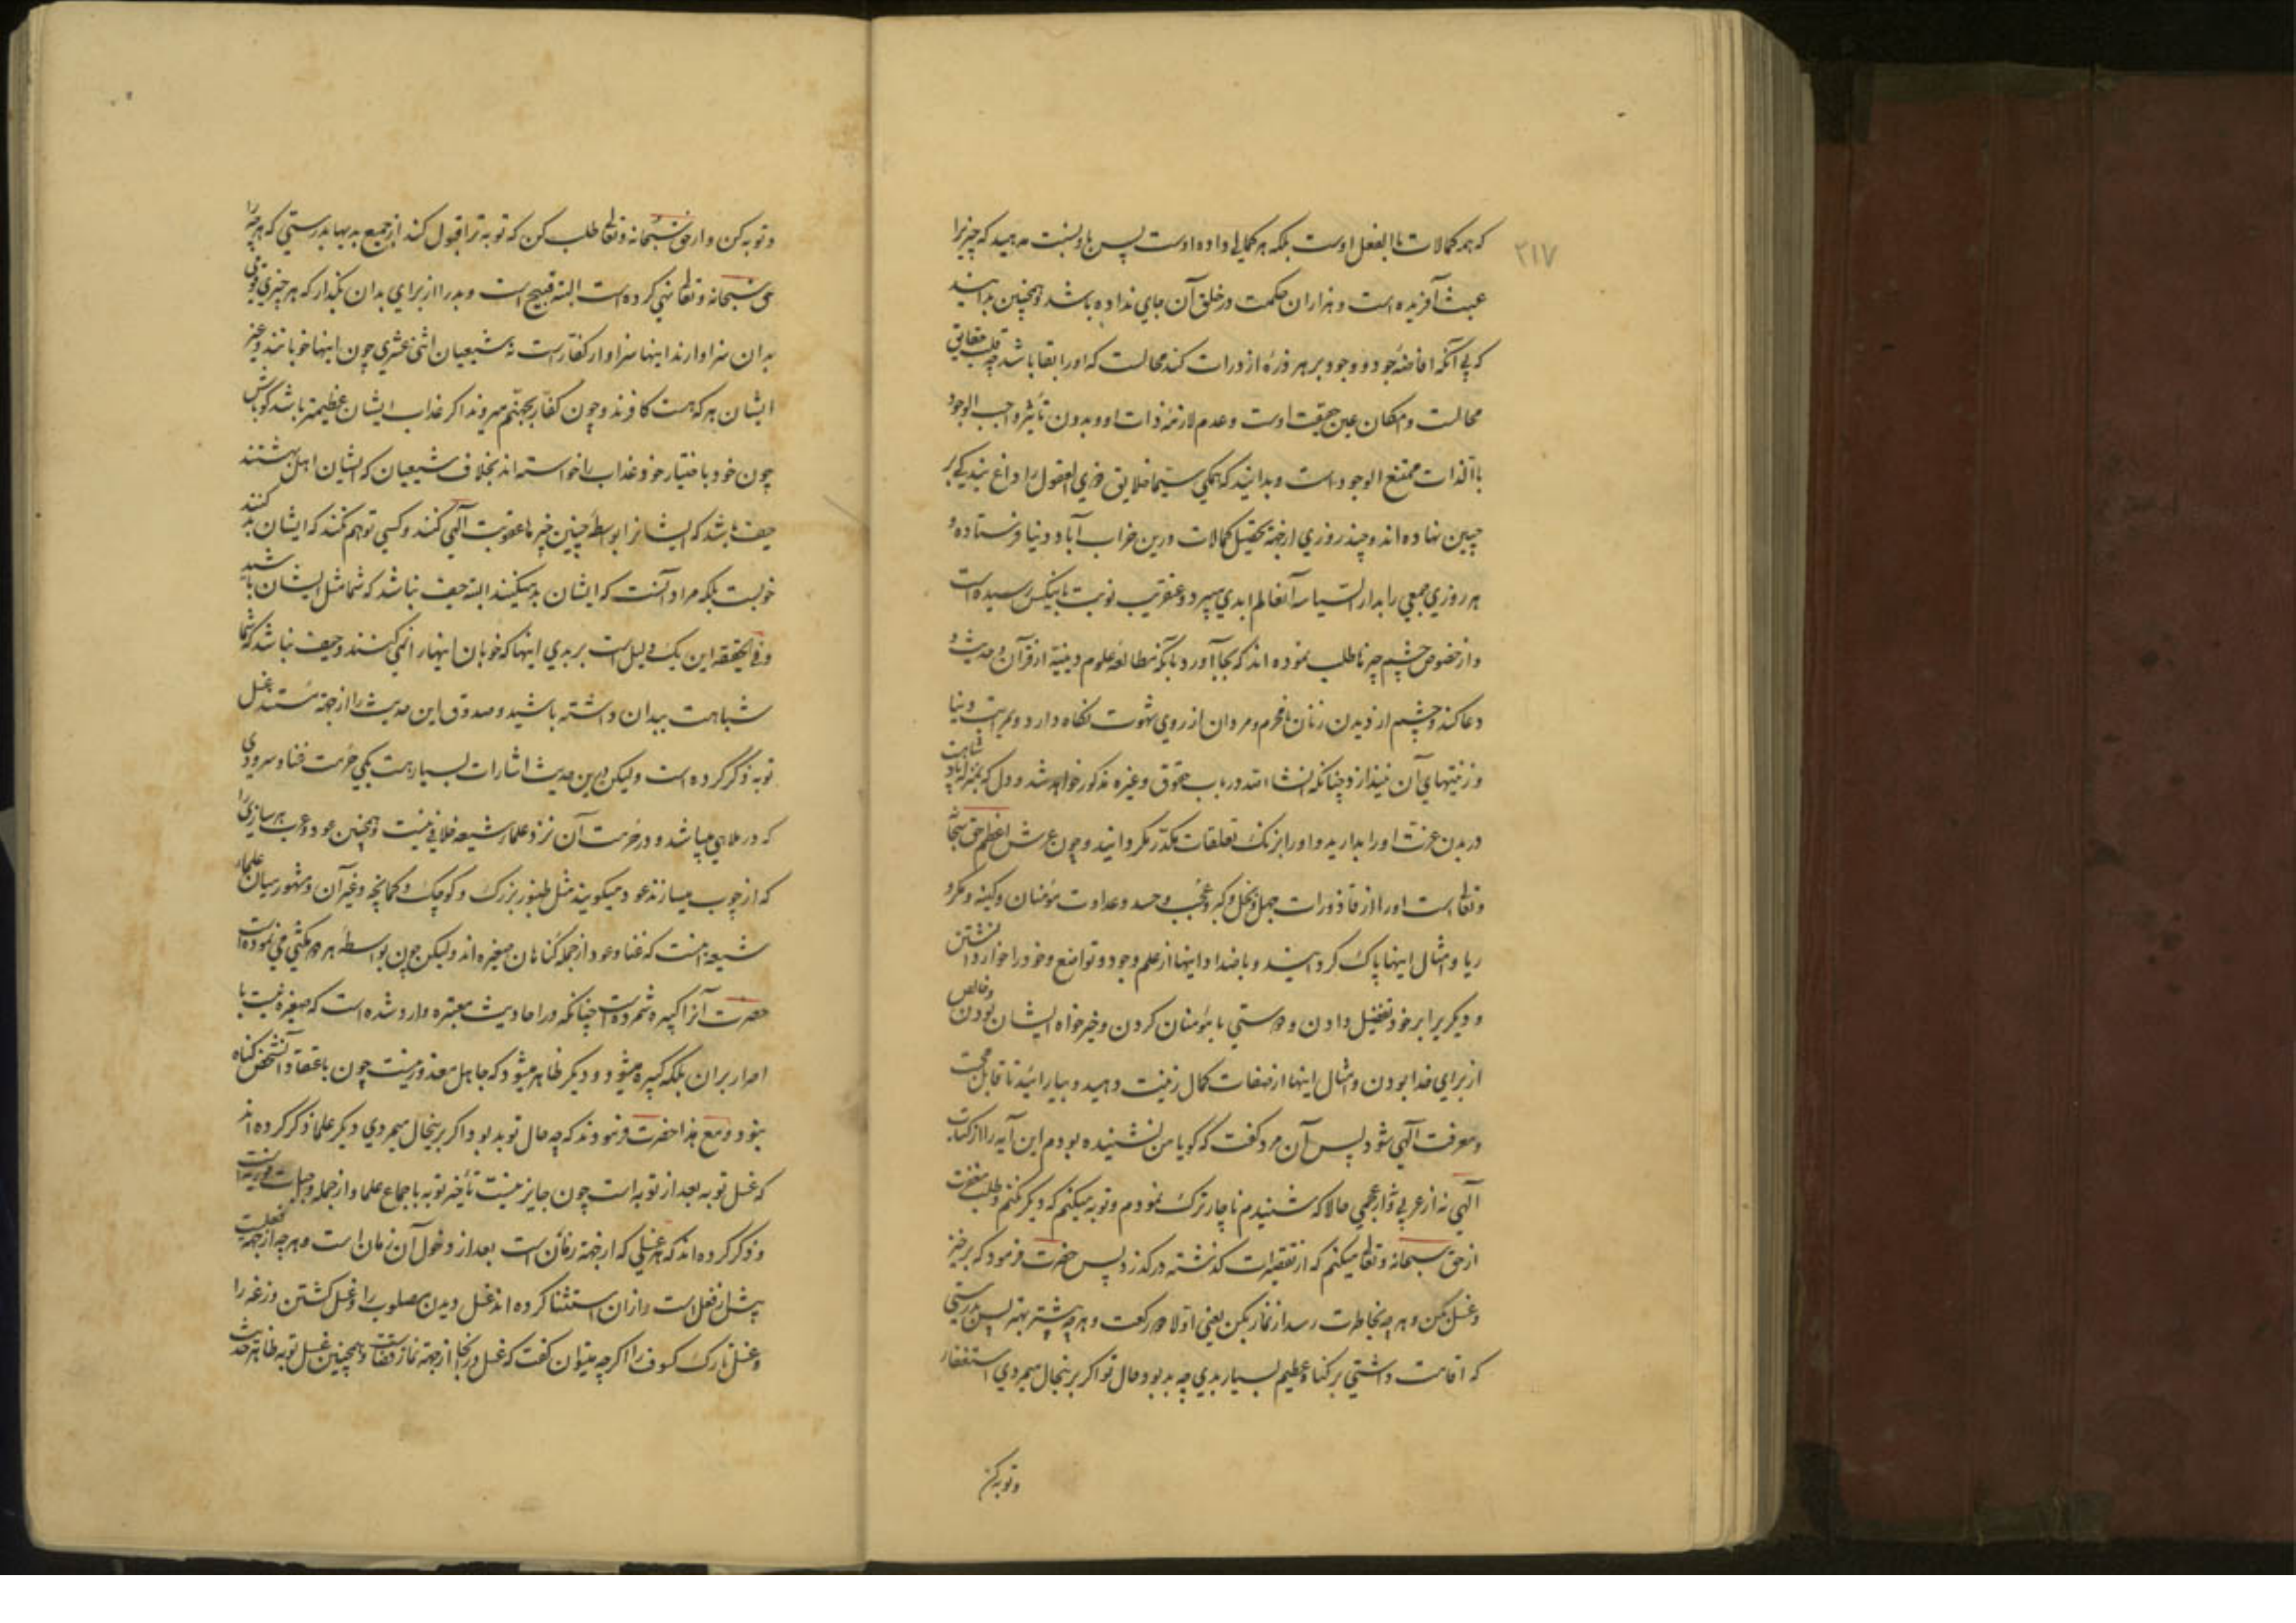 ۲۱۷
که همه کمالات ما بالفعل اوست بلکه هر کمالی داده اوست پس باو نسبت مدهید که چیزیرا
عبث آفریده است و هزاران حکمت در خلق آن جای نداده باشد و همچنین بدانید
که بی آنکه افاضه جود و وجود بر هر ذره از ذرات کند محالست که او را بقا باشد چه قلب حقایق
محالست و امکان عین حقیقت اوست و عدم لازمه ذات او و بدون تأثیر واجب الوجود
بالذات ممتنع الوجود است و بدانید که همگی سیما خلایق ذوی العقول را داغ بندگی بر
جبین نهاده اند و چند روزی از جهة تحصیل کمالات درین خراب آباد دنیا فرستاده و
هر روزی جمعی را بدار السیاسه آنعالم ابدی میبرد و عنقریب نوبت باینکس رسیده است
و از خصوص چشم چیزها طلب نموده اند که بجا آورد بآنکه مطالعه علوم دینیة از قرآن و حدیث و
دعا کند و چشم از دیدن زنان نامحرم و مردان از روی شهوت نگاه دارد و بمراتب دنیا
و زینتهای آن نیندازد چنانکه انشاء الله در باب حقوق و غیره مذکور خواهد شد و دل که بمنزله پادشاهست
در بدن عزت او را بدارید و او را بزنک تعلقات مکدر مگردانید و چون عرش اعظم حق سبحانه
و تعالی است او را از قاذورات جهل و بخل و کبر و عجب و حسد و عداوت مؤمنان و کینه و مکر و
ریا و امثال اینها پاک گردانید و باضداد اینها از علم وجود و تواضع و خود را خوار داشتن
و دیگر برابر خود تفضیل دادن و دوستی با مؤمنان کردن و خیرخواه ایشان بودن و خالص
از برای خدا بودن و امثال اینها از صفات کمال زینت دهید و بیارائید تا قابل محبت
و معرفت آلهی شود پس آن مرد گفت که گویا من نشنیده بودم این آیه را از کتاب
آلهی نه از عربی و نه از عجمی حالا که شنیدم ناچار ترک نمودم و توبه میکنم که دیگر نکنم و طلب مغفرت
از حق سبحانه و تعالی میکنم که از تقصیرات گذشته درگذرد پس حضرت فرمود که برخیز
و غسل بکن و هر چه بخاطرت رسد از نماز بکن یعنی اولا دو رکعت و هر چه بیشتر بهتر پس بدرستی
که اقامت داشتی بر گناه عظیم بسیار بدی چه بد بود حال تو اگر برینحال میمردی استغفار
و توبه کن
و توبه کن و از حق سبحانه و تعالی طلب کن که توبه ترا قبول کند از جمیع بدیها بدرستی که هر چه را
حق سبحانه و تعالی نهی کرده است البته قبیح است و بد را از برای بدان بگذار که هر چیزی قومی
بدان سزاوارند اینها سزاوار کفار است نه شیعیان اثنی عشری چون اینها خوبانند و غیر
ایشان هر که هست کافرند و چون کفار بجهنم میروند اگر عذاب ایشان عظیمتر باشد گو باش
چون خود باختیار خود عذاب را خواسته اند بخلاف شیعیان که ایشان اهل بهشتند
حیف باشد که ایشانرا بواسطه چنین چیزها عقوبت آلهی کنند و کسی توهم نکند که ایشان بد کنند
خوبست بلکه مراد آنست که ایشان بد میکنند البته حیف نباشد که شما مثل ایشان باشید
و فی الحقیقه این یک دلیل است بر بدی اینها که خوبان اینها را نمی کنند و حیف نباشد که شما
شباهت ببدان داشته باشید و صدوق این حدیث را از جهة سند غسل
توبه ذکر کرده است ولیکن درین حدیث اشارات بسیار هست یکی حرمت غنا و سرودی
که در ملاهی میباشد و در حرمت آن نزد علماء شیعه خلافی نیست و همچنین عود و عرب هر سازی را
که از چوب میسازند عود میگویند مثل طنبور بزرک و کوچک و کمانچه و غیر آن و مشهور میان علماء
شیعه اینست که غنا و عود از جمله گناهان صغیره اند ولیکن چون بواسطه هر دو مکثی می نموده است
حضرت آنرا کبیره شمرده است چنانکه در احادیث معتبره وارد شده است که صغیره نیست با
اصرار بران بلکه کبیره میشود و دیگر ظاهر میشود که جاهل معذور نیست چون باعتقاد آنشخص گناه
نبود و مع هذا حضرت فرمودند که چه حال تو بد بود اگر برینحال میمردی دیگر علما ذکر کرده اند
که غسل توبه بعد از توبه است چون جایز نیست تأخیر توبه باجماع علما و از جمله واجبات فوریه است
و ذکر کرده اند که هر غسلی که از جهة زمان است بعد از دخول آن زمان است و هر چه از جهة فعلیست
پیش از فعل است و ازان استثنا کرده اند غسل دیدن مصلوب را و غسل کشتن وزغه را
و غسل تارک کسوف را اگر چه میتوان گفت که غسل در آنجا از جهة نماز قضاست و همچنین غسل توبه ظاهر حدیث